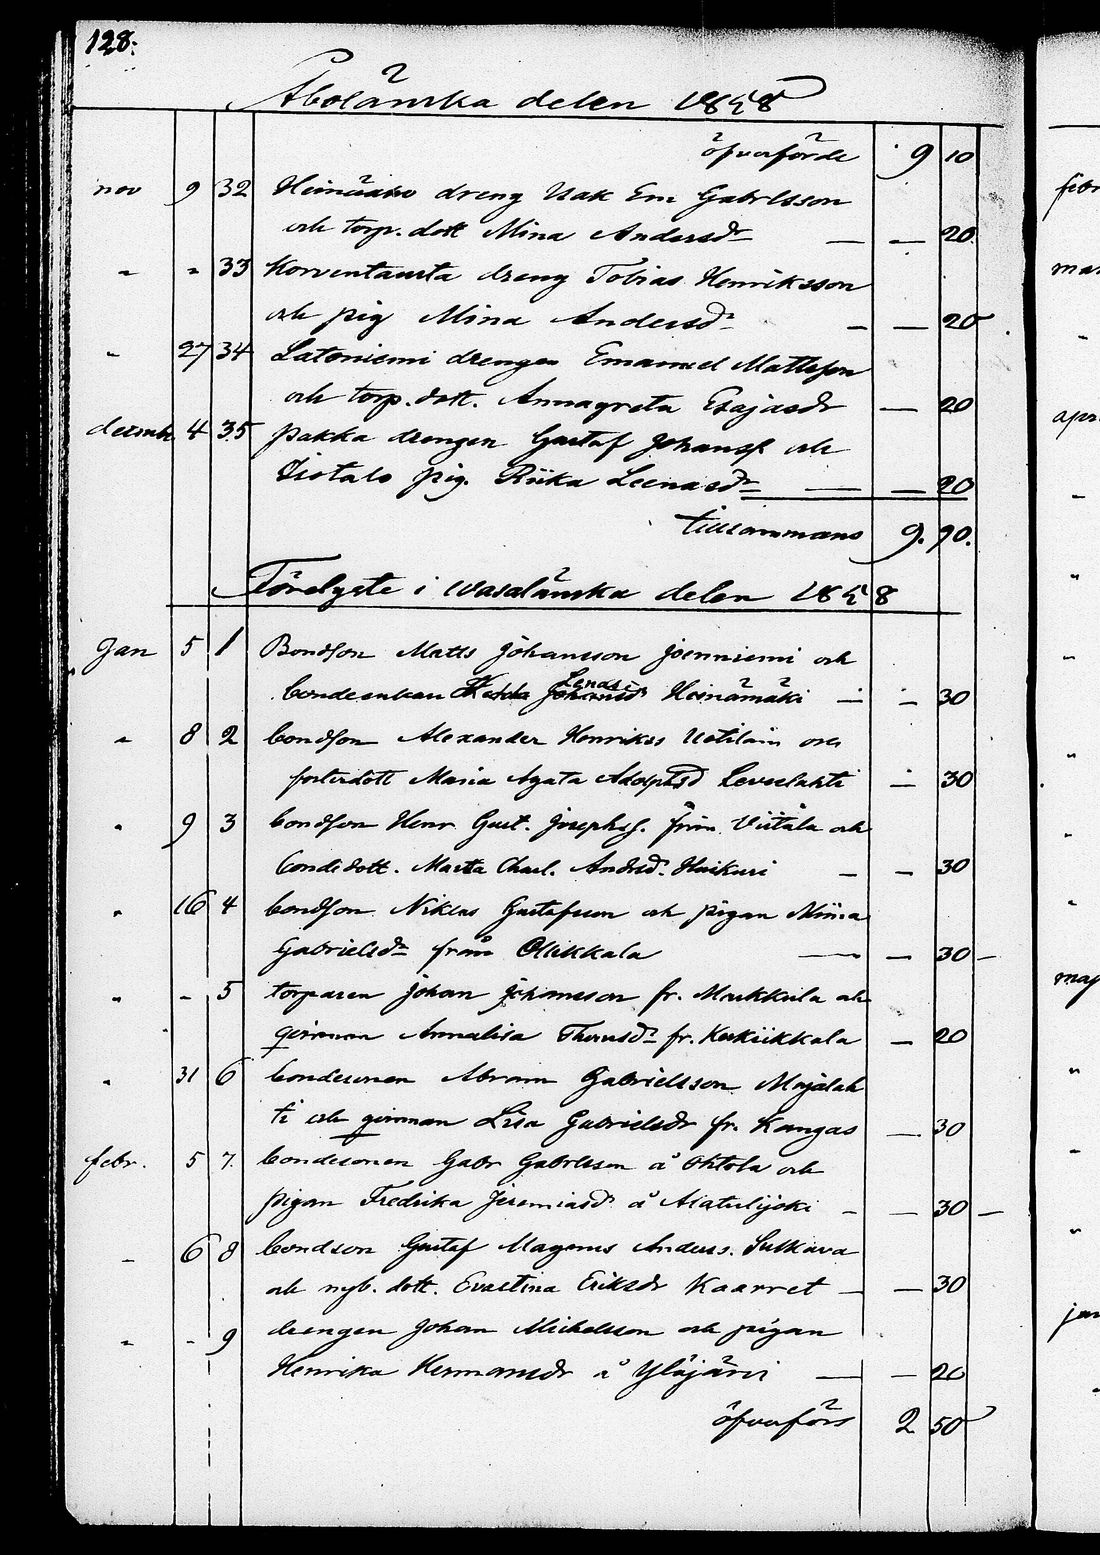 128:
Åbolänska delen 1858
öfverförde 9 10
nov 9 32 Heinäaho dreng Isak Em Gabrlsson
och torp. dott Mina Andersdr — — 20
" " 33 Korventausta dreng Tobias Henriksson
och pig Mina Andersdr — — 20
" 27 34 Latoniemi drengen Emanuel Mattsson
och torp. dott. Annagreta Esajasdr — 20
decemb. 4 35 pakka drengen Gustaf Johanss. och
Iisotalo pig. Riika Leenasdr — — 20
tillsammans 9. 90.
Förelyste i wasalänska delen 1858
Jan 5 1 Bondson Matts Johansson Joenniemi och
bondeenkan Hedda Lenas Heinämäki — — 30
" 8 2 bondson Alexander Henrikss Uotilain och
fosterdott Maria Agata Adolphsd Leveelahti — 30
" 9 3 bondson Henr Gust. Josephss. från Viitala och
bondedott. Maria Charl. Andrsd. Huikuri — — 30
" 16 4 bondson Niklas Gustafsson och pigan Miina
Gabrielsdr från Ollikkala — — 30 —
" - 5 torparen Johan Johansson fr. Markkula och
qvinnan Annalisa Thomsdr fr. Keskikkala — 20
" 31 6 bondesonen Abram Gabrielsson Majalah
ti och qvinnan Lisa Gabrielsdr fr. Kangas — 30
febr. 5 7. bondesonen Gabr Gabrlsson å Ohtola och
pigan Fredrika Jeremiasdr å Alatulijoki — — 30 —
" 6 8 bondson Gustaf Magnus Anders. Sulkava
och nyb. dott. Evastina Eriksdr Kaarret — — 30
" - 9 drengen Johan Michelsson och pigan
Henrika Hermansdr å Ylijärvi — — 20
öfverförs 2 50
febr
mar
apr
maj
jun